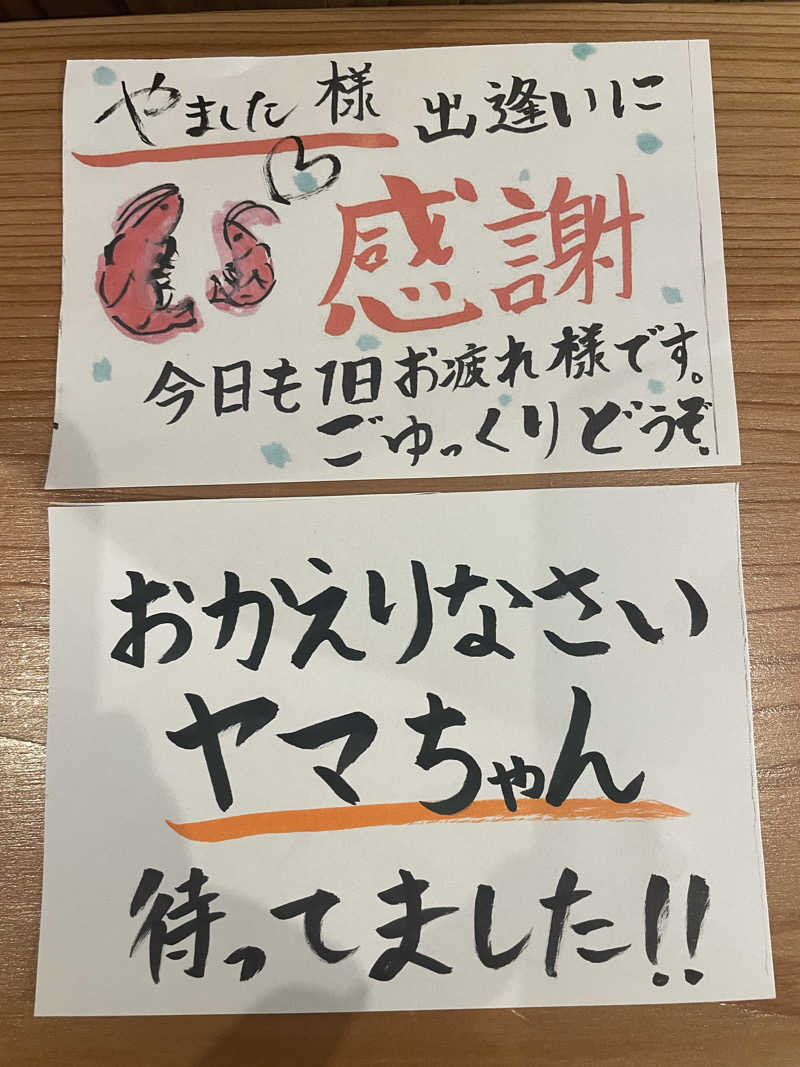 やました様
出逢いに
感謝
今日も1日お疲れ様です。
ごゆっくりどうぞ。
おかえりなさい
ヤマちゃん
待ってました!!